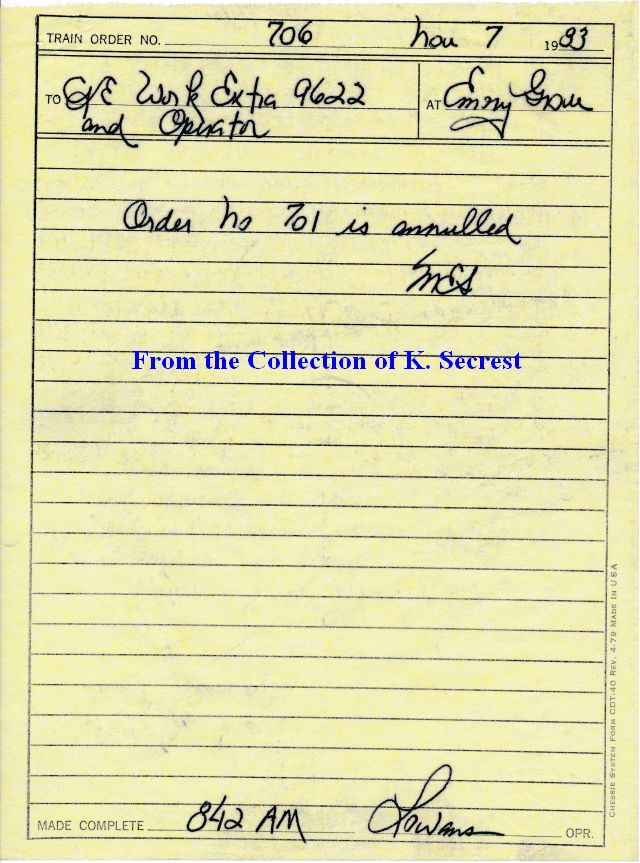 TRAIN ORDER NO. 706 Nov 7 1983
TO C/E Work Extra 9622 AT Emory Grove
and Operator
Order No 701 is annulled
MES
From the Collection of K. Secrest
MADE COMPLETE 842 AM Lowans OPR.
CHESSIE SYSTEM FORM CDT-40 REV. 4-79 MADE IN USA